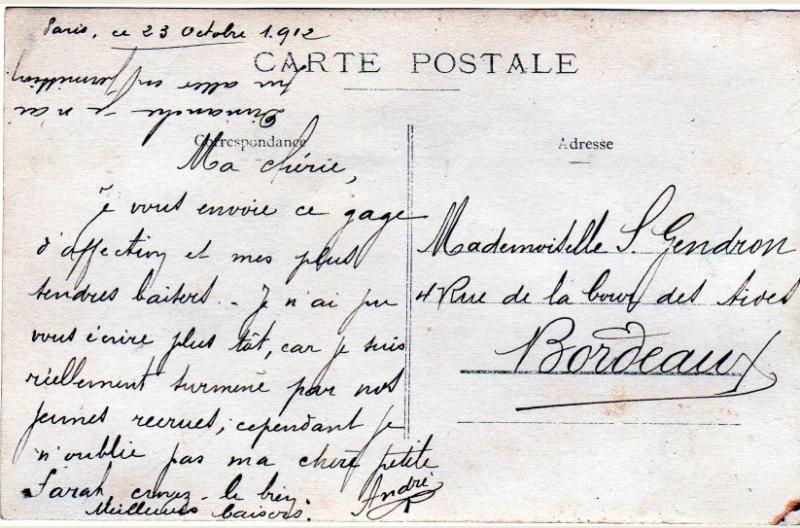 Paris, ce 23 Octobre 1912
CARTE POSTALE
Dimanche je n'ai
pu aller en permission
Correspondance
Ma chérie,
Je vous envoie ce gage
d'affection et mes plus
tendres baisers. Je n'ai pu
vous écrire plus tôt, car je suis
réellement surmené par nos
jeunes recrues, cependant je
n'oublie pas ma chère petite
Sarah, croyez-le bien.
Meilleurs baisers.
André
Adresse
Mademoiselle S. Gendron
4 Rue de la Cour des Aides
Bordeaux